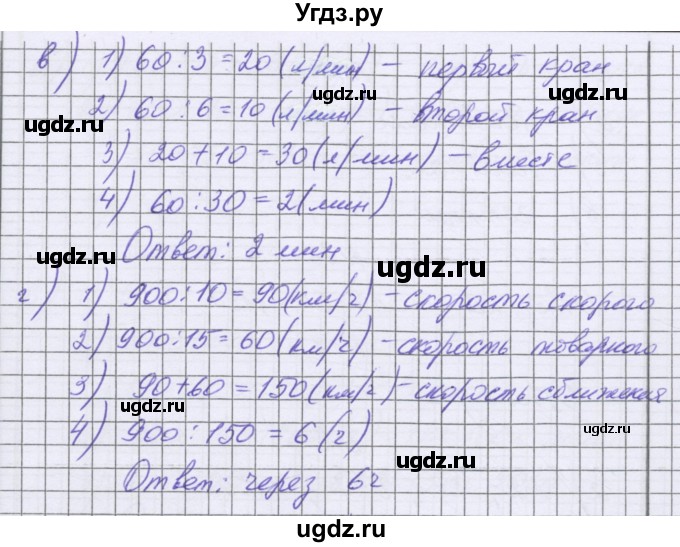 Угдз.ру
в) 1) 60:3=20(л/мин) – первый кран
ugdz.ru
2) 60:6=10(л/мин) – второй кран
ugdz.ru ugdz.ru
3) 20+10=30(л/мин) – вместе
4) 60:30=2(мин)
ugdz.ru
Ответ: 2 мин
ugdz.ru ugdz.ru
г) 1) 900:10=90(км/ч) – скорость скорого
2) 900:15=60(км/ч) – скорость товарного
3) 90+60=150(км/ч) – скорость сближения
ugdz.ru
4) 900:150=6(ч)
ugdz.ru
ugdz.ru
Ответ: через 6ч
ugdz.ru